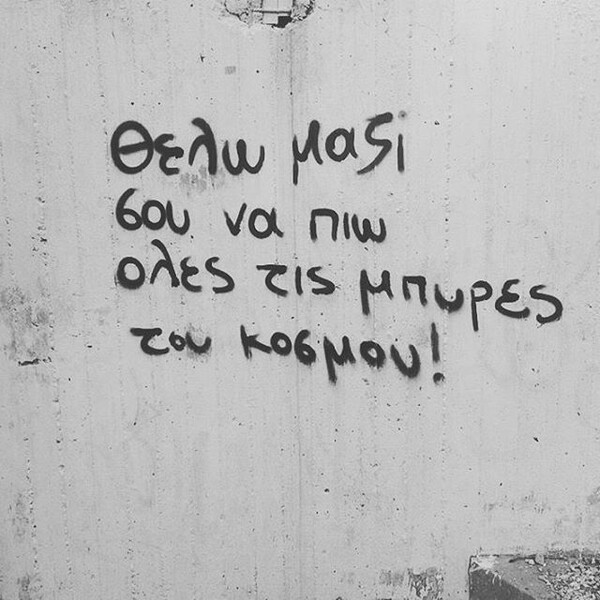 θελω μαζi
σου να πιω
ολες τις μπυρες
του κοσμου!